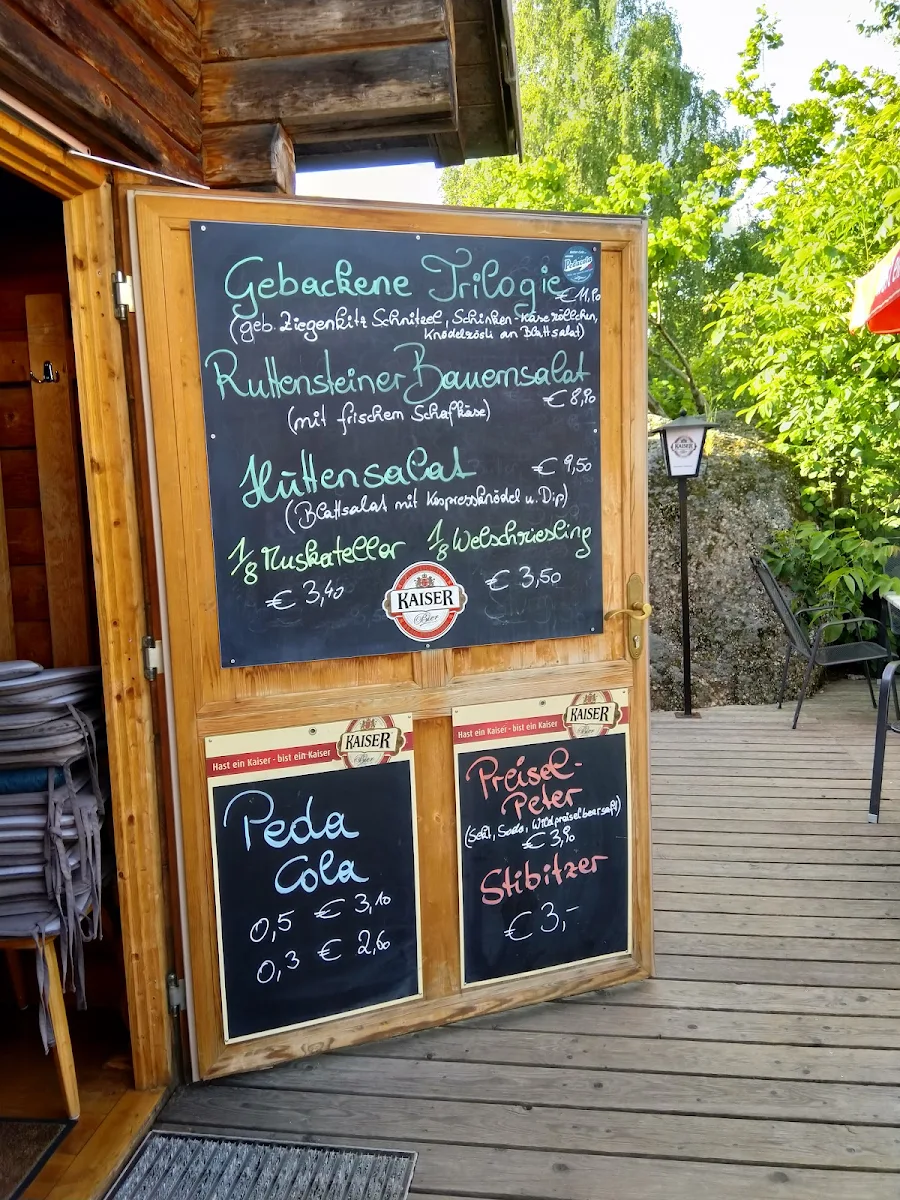 Gebackene Trilogie
€ 11,90
(geb. Ziegenkitz Schnitzel, Schinken-Käseröllchen,
Knödelrösti an Blattsalat)
Ruttensteiner Bauernsalat
€ 8,90
(mit frischem Schafkäse)
Hüttensalat € 9,50
(Blattsalat mit Kaspressknödel u. Dip)
1/8 Muskateller 1/8 Welschriesling
€ 3,40 € 3,50
KAISER
Bier
KAISER
Bier
Hast ein Kaiser - bist ein Kaiser
Peda
Cola
0,5 € 3,10
0,3 € 2,60
KAISER
Bier
Hast ein Kaiser - bist ein Kaiser
Preisel-
Peter
(Sekt, Soda, Wildpreiselbeersaft)
€ 3,90
Stibitzer
€ 3,-
KAISER